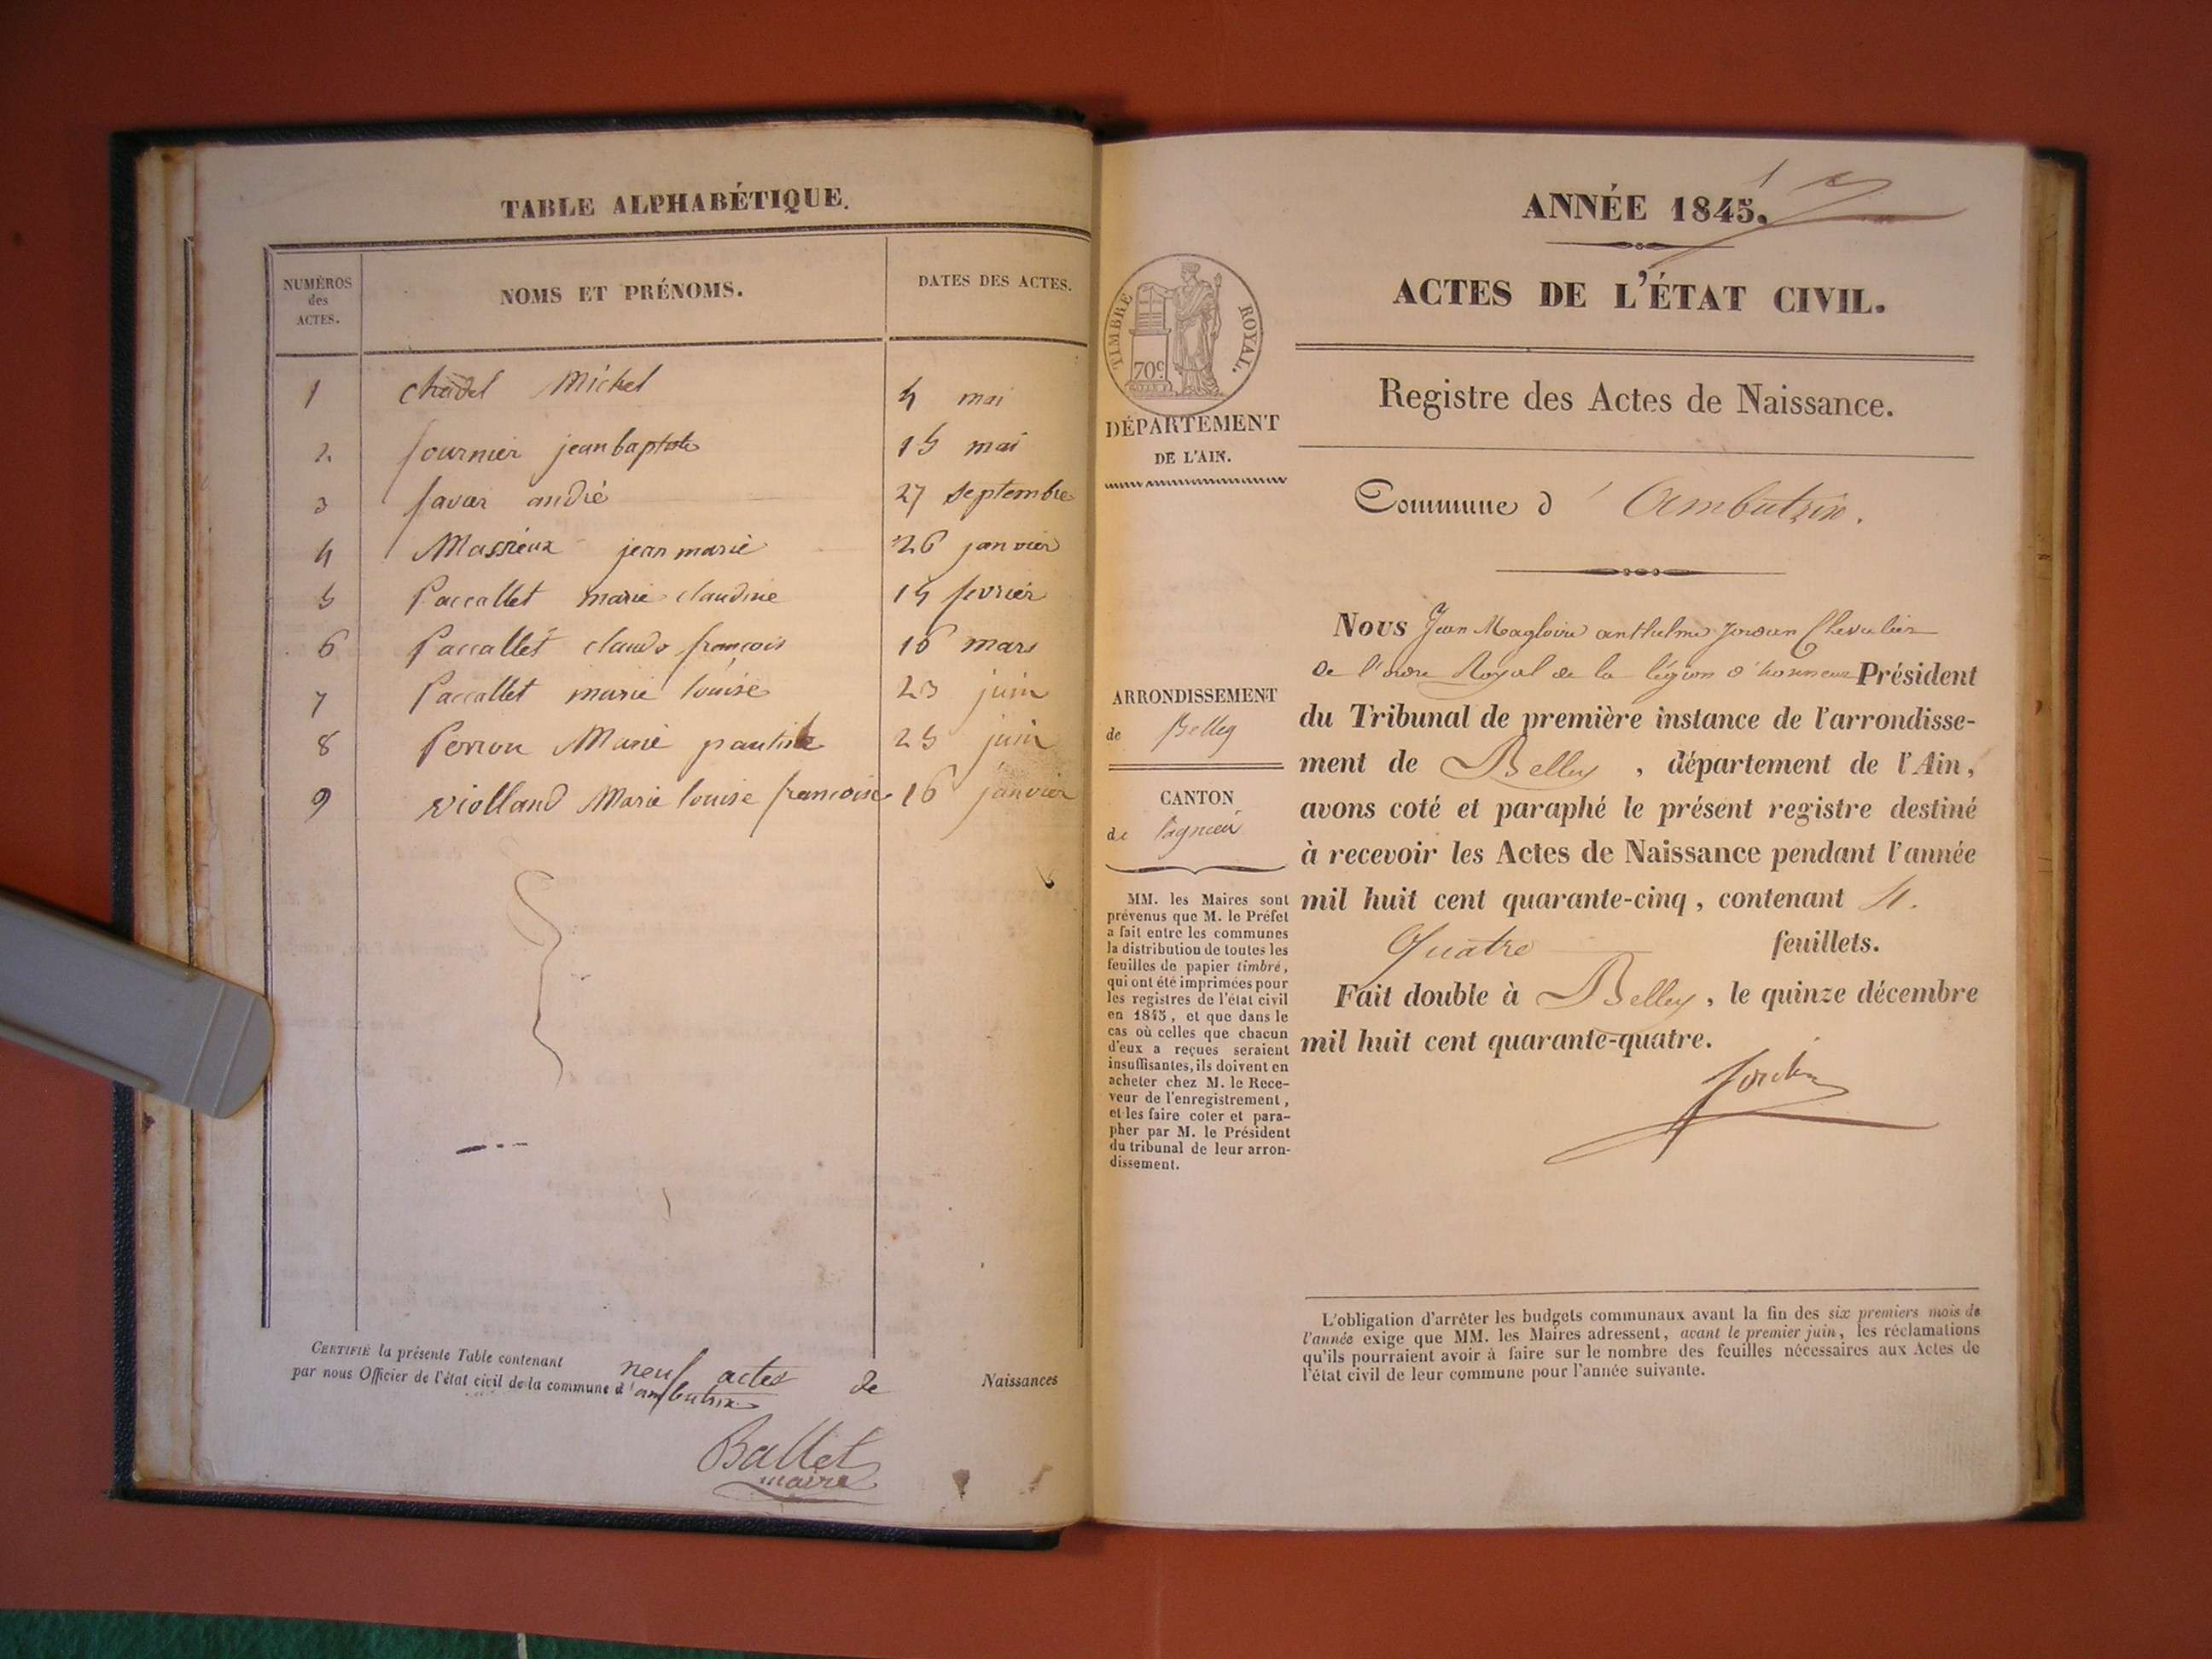 TABLE ALPHABÉTIQUE.
NUMÉROS des ACTES. NOMS ET PRÉNOMS. DATES DES ACTES.
1 Michel 4 mai
2 fournier jean baptiste 15 mai
3 favier andré 27 septembre
4 Massieux jean marie 26 janvier
5 Paccallet marie claudine février
6 Paccallet claude françois 16 mars
7 Paccallet marie louise 23 juin
8 Perron Marie 25 juin
9 violland Marie louise francoise 16 janvier
CERTIFIÉ la présente Table contenant neuf actes de Naissances
par nous Officier de l'état civil de la commune d'ambutrix
Ballet
maire
1
ANNÉE 1845.
ACTES DE L'ÉTAT CIVIL.
Registre des Actes de Naissance.
Commune d'Ambutrix.
TIMBRE ROYAL.
70c
DÉPARTEMENT
DE L'AIN.
ARRONDISSEMENT
de Belley
CANTON
de Lagnieu
MM. les Maires sont
prévenus que M. le Préfet
a fait entre les communes
la distribution de toutes les
feuilles de papier timbré,
qui ont été imprimées pour
les registres de l'état civil
en 1845, et que dans le
cas où celles que chacun
d'eux a reçues seraient
insuffisantes, ils doivent en
acheter chez M. le Rece-
veur de l'enregistrement,
et les faire coter et para-
pher par M. le Président
du tribunal de leur arron-
dissement.
Nous Jean Magloire anthelme Jordan Chevalier
de l'ordre Royal de la légion d'honneur Président
du Tribunal de première instance de l'arrondisse-
ment de Belley, département de l'Ain,
avons coté et paraphé le présent registre destiné
à recevoir les Actes de Naissance pendant l'année
mil huit cent quarante-cinq, contenant 4.
Quatre feuillets.
Fait double à Belley, le quinze décembre
mil huit cent quarante-quatre.
Jordan
L'obligation d'arrêter les budgets communaux avant la fin des six premiers mois de
l'année exige que MM. les Maires adressent, avant le premier juin, les réclamations
qu'ils pourraient avoir à faire sur le nombre des feuilles nécessaires aux Actes de
l'état civil de leur commune pour l'année suivante.